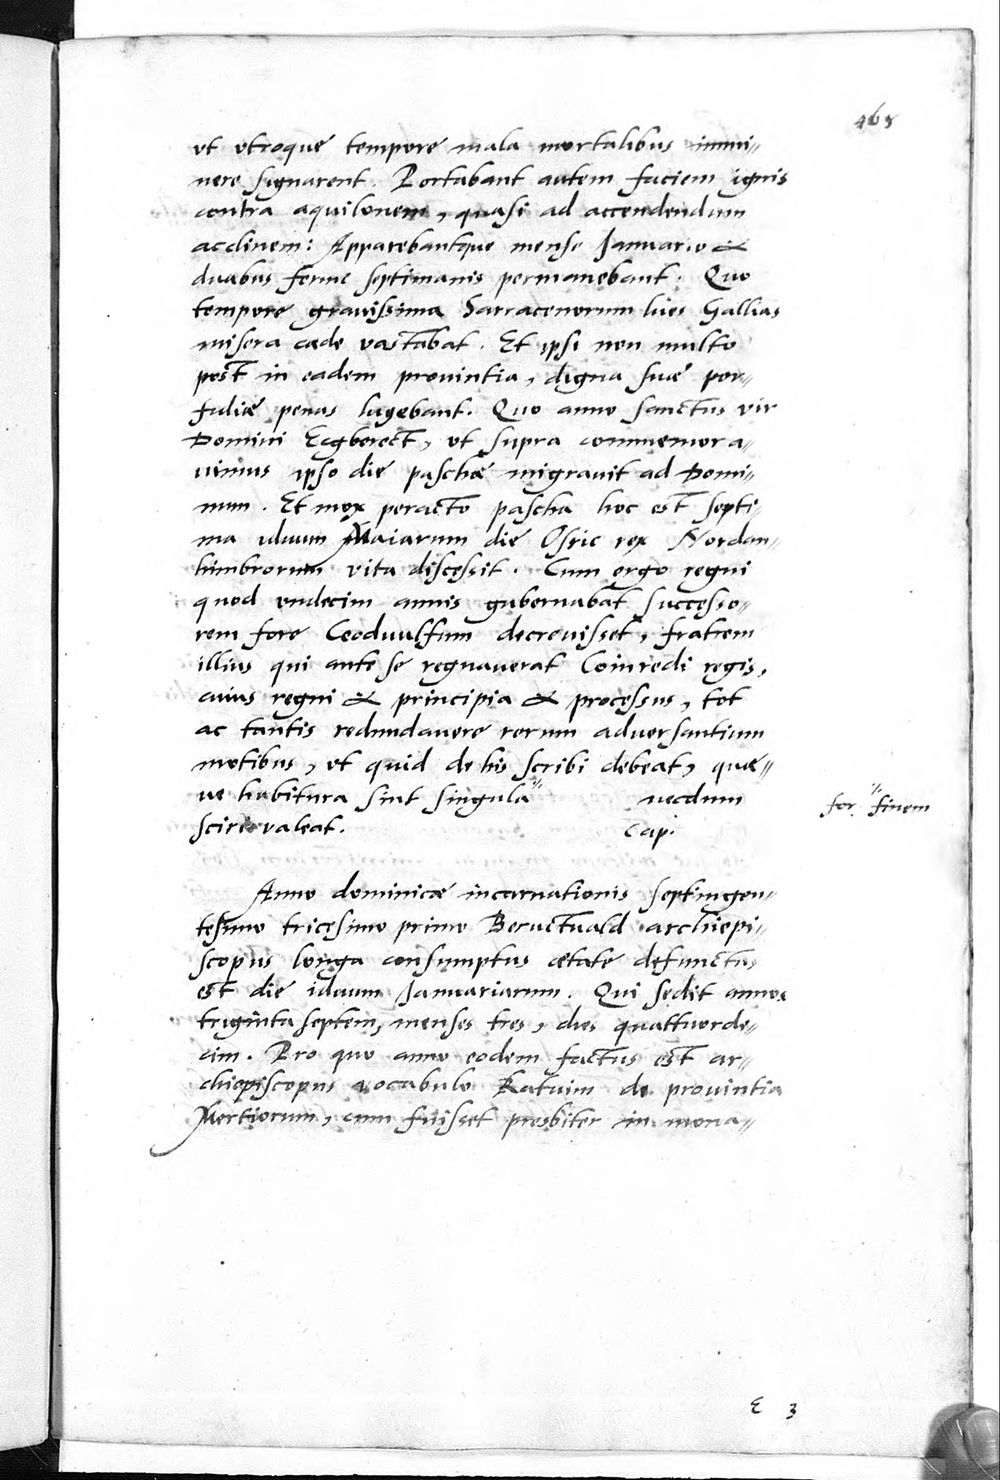 465
vt vtroque tempore mala mortalibus immi〃
nere signarent. Portabant autem faciem ignis
contra aquilonem, quasi ad accendendum
acclinem: Apparebantque mense Ianuario &
duabus ferme septimanis permanebant. Quo
tempore grauissima Sarracenorum lues Gallias
misera cade vastabat. Et ipsi non multo
post in eadem prouintia, digna suæ per〃
fidiæ penas lugebant. Quo anno sanctus vir
Domini Ecgberect, vt supra commemora〃
uimus ipso die paschæ migrauit ad Domi〃
num. Et mox peracto pascha hoc est septi〃
ma iduum Maiarum die Osric rex Nordan〃
himbrorum vita discessit. Cum ergo regni
quod vndecim annis gubernabat successo〃
rem fore Ceoduulfum decreuisset, fratrem
illius qui ante se regnauerat Coinredi regis,
cuius regni & principia & processus, tot
ac tantis redundauere rerum aduersantium
motibus, vt quid de his scribi debeat, quæ〃
ue habitura sint singula〃 necdum
for. 〃 finem
sciri valeat. Cap.
Anno dominicæ incarnationis septingen〃
tesimo tricesimo primo Beructuald archiepi〃
scopus longa consumptus ætate defunctus
est die iduum Ianuariarum. Qui sedit annos
triginta septem, menses tres, dies quattuorde〃
cim. Pro quo anno eodem factus est ar〃
chiepiscopus vocabulo Ratuim de prouintia
Mertiorum, cum fuisset presbiter in mona〃
E 3